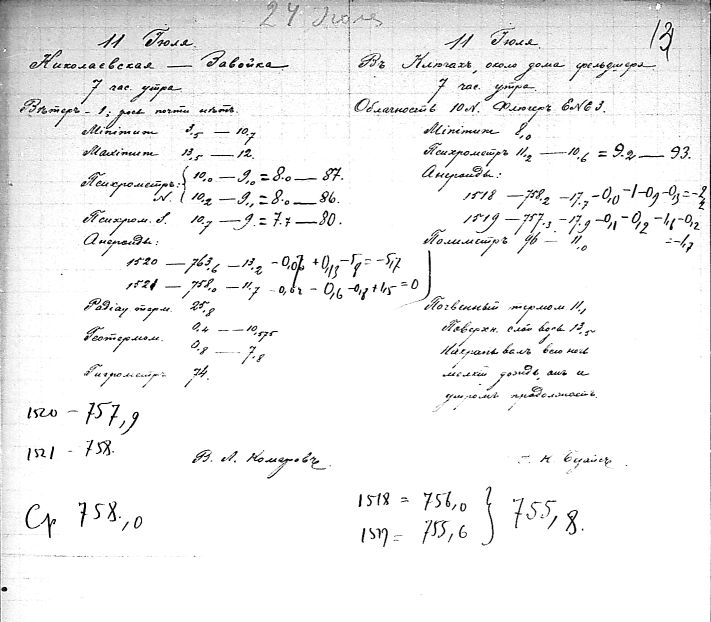 24 Іюля
13
11 Іюля.
Николаевская — Завойка
7 час. утра
Вѣтеръ - 1; роса почти нѣтъ.
Minimum 3,5 — 10,7
Maximum 13,5 — 12.
Психрометръ: 10,0 — 9,0 = 8.0 — 87.
N. 10,2 — 9,1 = 8.0 — 86.
Психром. S. 10,7 — 9. = 7.7 — 80.
Анероиды:
1520 — 763,6 — 13,2
1521 — 758,0 — 11,7
Радіац. терм. 25,8
Геотермом. 0,4 — 10,575
0,8 — 7,8
Гигрометръ 74.
1520 - 757,9
1521 - 758.
В. Л. Комаровъ.
Ср 758,0
11 Іюля.
Въ Ключахъ, около дома фельдшера
7 час. утра.
Облачность 10 N. Флюгеръ ENE 3.
Minimum 8,0
Психрометръ 11,2 — 10,6 = 9.2 — 93.
Анероиды:
1518 — 758,2 — 17,7
1519 — 757,3 — 17,9
Полиметръ 96 — 11,0
Почвенный термом 11,1
Поверхн. 13,5
всю ночь
мелкій дождь, и
утромъ
1518 = 756,0
1519 = 755,6
755,8.